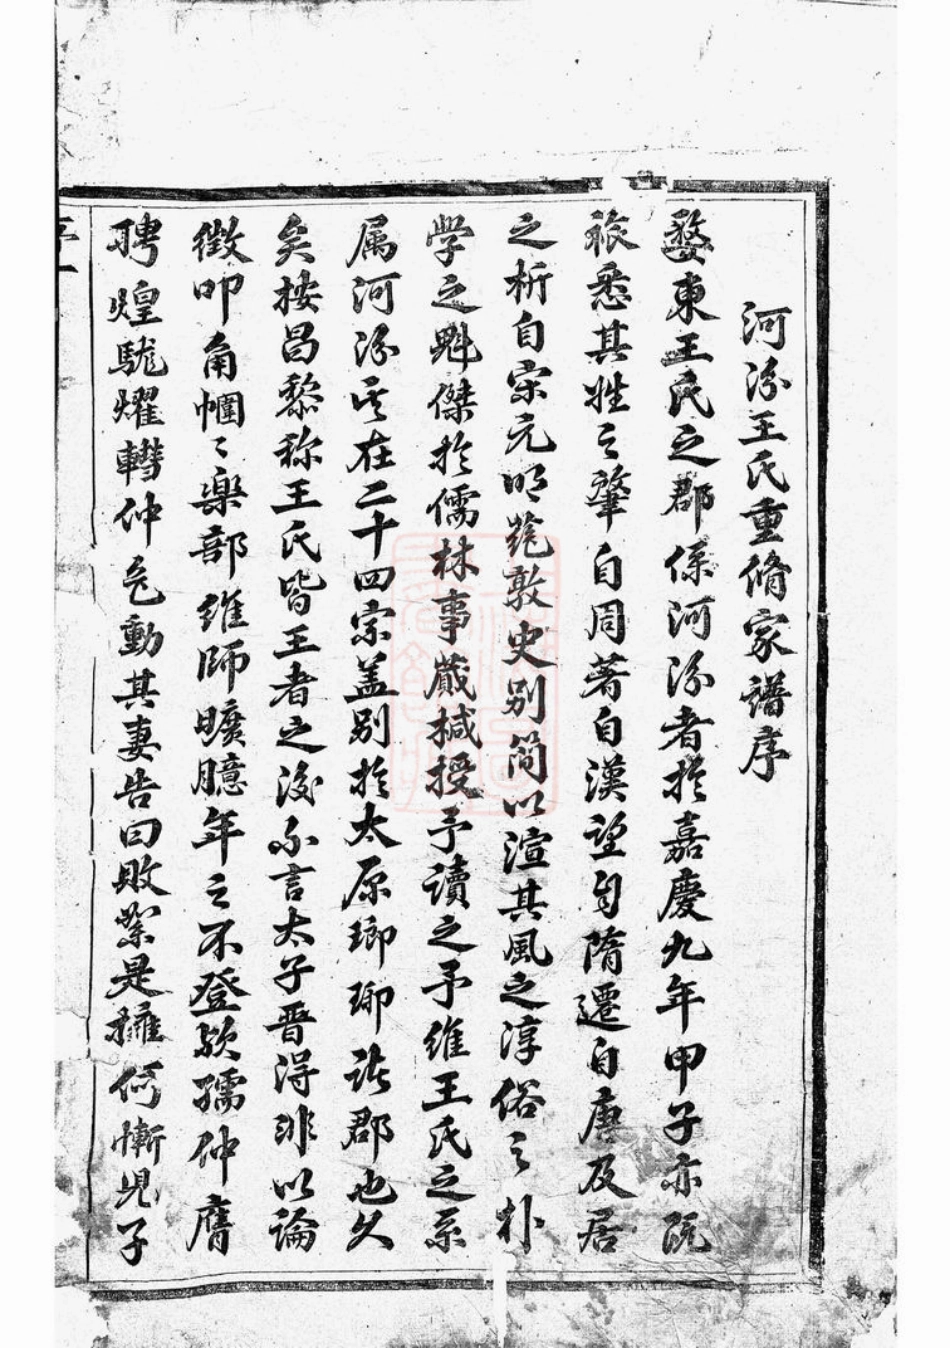 河汾王氏重脩家譜序
婺東王氏之郡係河汾者於嘉慶九年甲子亦既
派悉其姓之肇自周著自漢望自隋遷自唐及居
之析自宗元明蕝敦史别简以渲其風之淳俗之朴
学之魁傑於儒林事蕆椷授予讀之予維王氏之系
属河汾于在二十四宗盖别於太原瑯琊诸郡也久
矣按昌黎称王氏皆王者之後不言太子晋得非以論
徵叩角悃々樂部維師曠臆年之不登欤孺仲膺
聘煌駹燿轊仲乞動其妻告曰敗絮是擁何慚兒子
序一